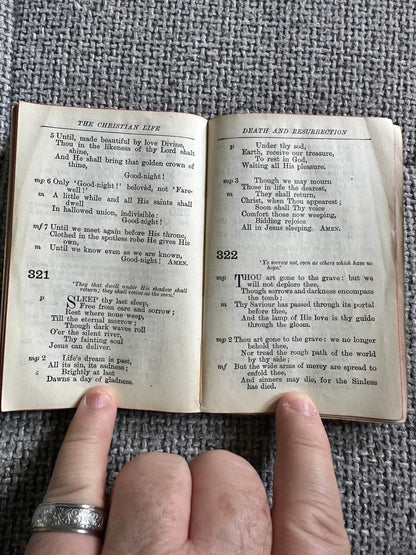 THE CHRISTIAN LIFE
5 Until, made beautiful by love Divine,
Thou in the likeness of thy Lord shalt
shine,
And He shall bring that golden crown of
thine,
Good-night!
mp 6 Only 'Good-night!' beloved, not 'Fare-
well!'
m A little while and all His saints shall
dwell
In hallowed union, indivisible:
Good-night!
mf 7 Until we meet again before His throne,
Clothed in the spotless robe He gives His
own,
m Until we know even as we are known,
Good-night! AMEN.
321
'They that dwell under His shadow shall
return; they shall revive as the corn.'
p SLEEP thy last sleep,
Free from care and sorrow;
Rest where none weep,
Till the eternal morrow;
Though dark waves roll
O'er the silent river,
Thy fainting soul
Jesus can deliver.
mp 2 Life's dream is past,
All its sin, its sadness;
c Brightly at last
Dawns a day of gladness.
DEATH AND RESURRECTION
p Under thy sod,
Earth, receive our treasure,
To rest in God,
Waiting all His pleasure.
mp 3 Though we may mourn
Those in life the dearest,
m They shall return,
Christ, when Thou appearest;
Soon shall Thy voice
Comfort those now weeping,
Bidding rejoice
All in Jesus sleeping. AMEN.
322
'Ye sorrow not, even as others which have no
hope.'
mp THOU art gone to the grave: but we
will not deplore thee,
Though sorrows and darkness encompass
the tomb;
m Thy Saviour has passed through its portal
before thee,
And the lamp of His love is thy guide
through the gloom.
mp 2 Thou art gone to the grave: we no longer
behold thee,
Nor tread the rough path of the world
by thy side;
mf But the wide arms of mercy are spread to
enfold thee,
And sinners may die, for the Sinless
has died.